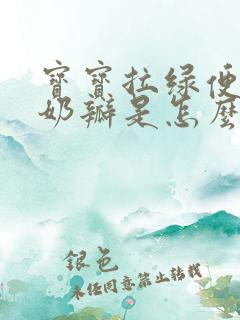 寶寶拉綠便
奶瓣是怎麼
銀色
未經同意禁止轉載